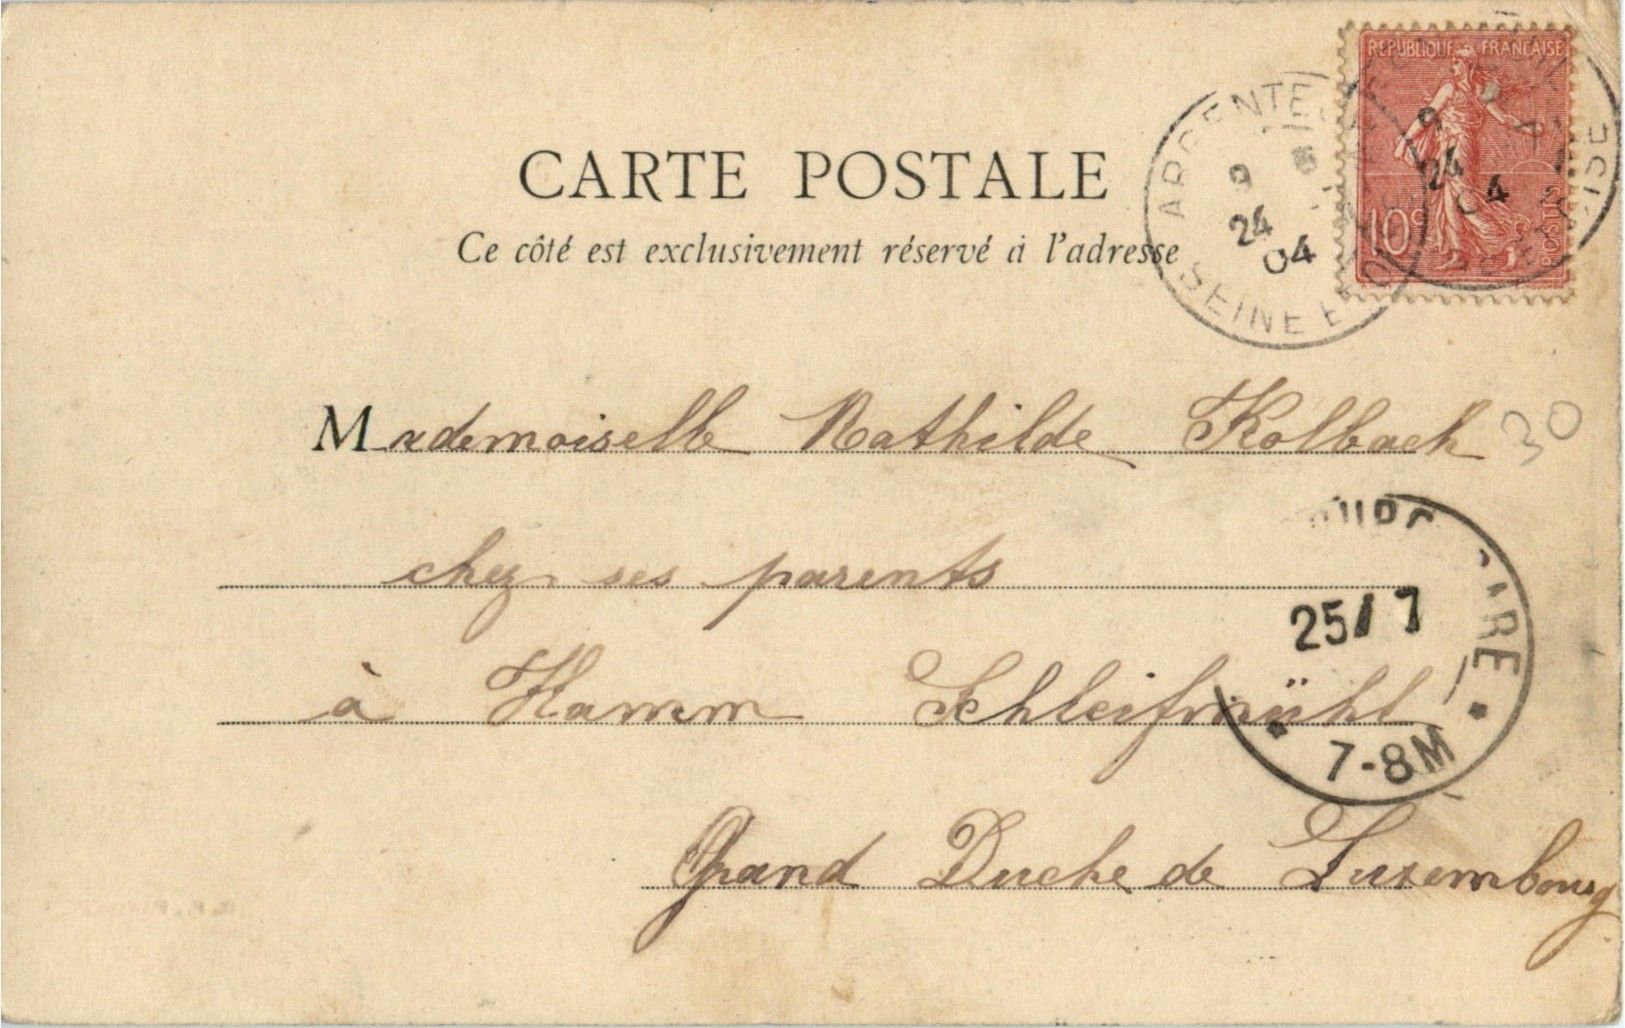 REPUBLIQUE FRANÇAISE
10c
POSTES
ARGENTEUIL
9
24
04
SEINE ET OISE
9
24
04
CARTE POSTALE
Ce côté est exclusivement réservé à l'adresse
Mademoiselle Mathilde Kolbach
30
chez ses parents
à Hamm Schleifmühl
Grand Duche de Luxembourg
GARE
25/7
7-8M